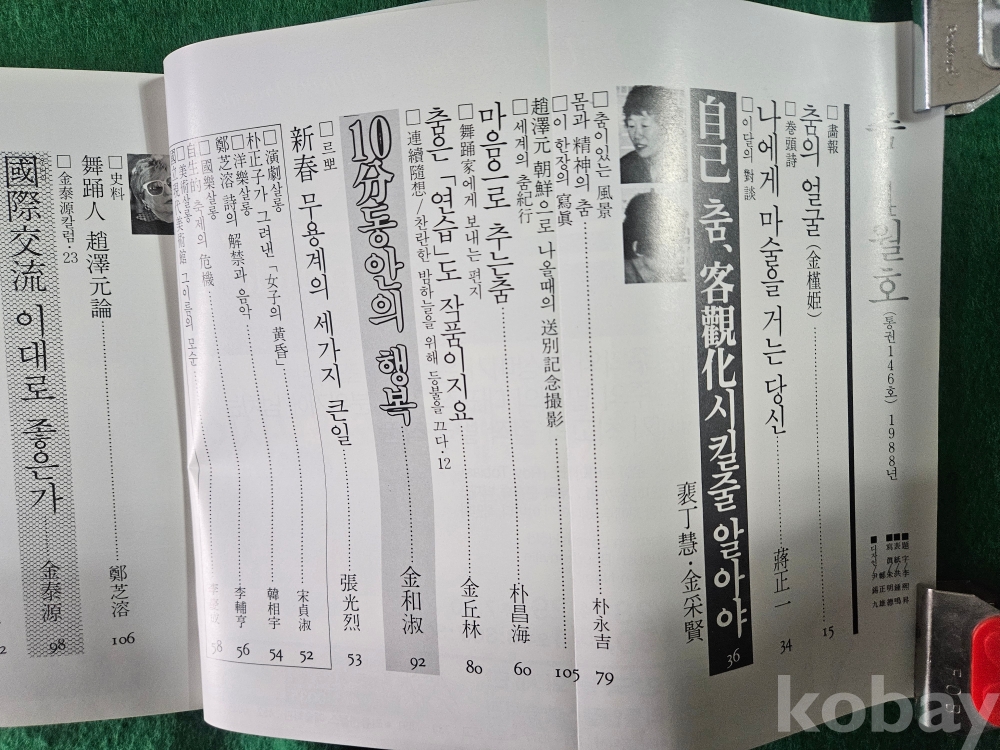 월호 (통권146호) 1988년
■題字/李
■表紙/洪鍾鳴
■寫眞/朱明德
■디자인/尹錫九
□畵報
춤의 얼굴 (金槿姬) 15
□卷頭詩
나에게 마술을 거는 당신 蔣正一 34
□이달의 對談
自己 춤, 客觀化시킬줄 알아야 36
裵丁慧·金宋賢
□춤이있는 風景
몸과 精神의 춤 朴永吉 79
□이 한장의 寫眞
趙澤元 朝鮮으로 나올때의 送別記念撮影 105
□세계의 춤紀行
마음으로 추는춤 朴昌海 60
□舞踊家에게 보내는 편지
춤은 「연습」도 작품이지요 金丘林 80
□連續隨想/찬란한 밤하늘을 위해 등불을 끄다·12
10分동안의 행복 金和淑 92
□르뽀
新春 무용계의 세가지 큰일 張光烈 53
□演劇살롱
朴正子가 그려낸 「女子의 黃昏」 宋貞淑 52
□洋樂살롱
鄭芝溶 詩의 解禁과 음악 韓相宇 54
□國樂살롱
自生的 축제의 危機 李輔亨 56
□美術살롱
國立現代美術館 그 이름의 모순 58
□史料
舞踊人 趙澤元論 鄭芝溶 106
□金泰源칼럼·23
國際交流 이대로 좋은가 金泰源 98
kobay